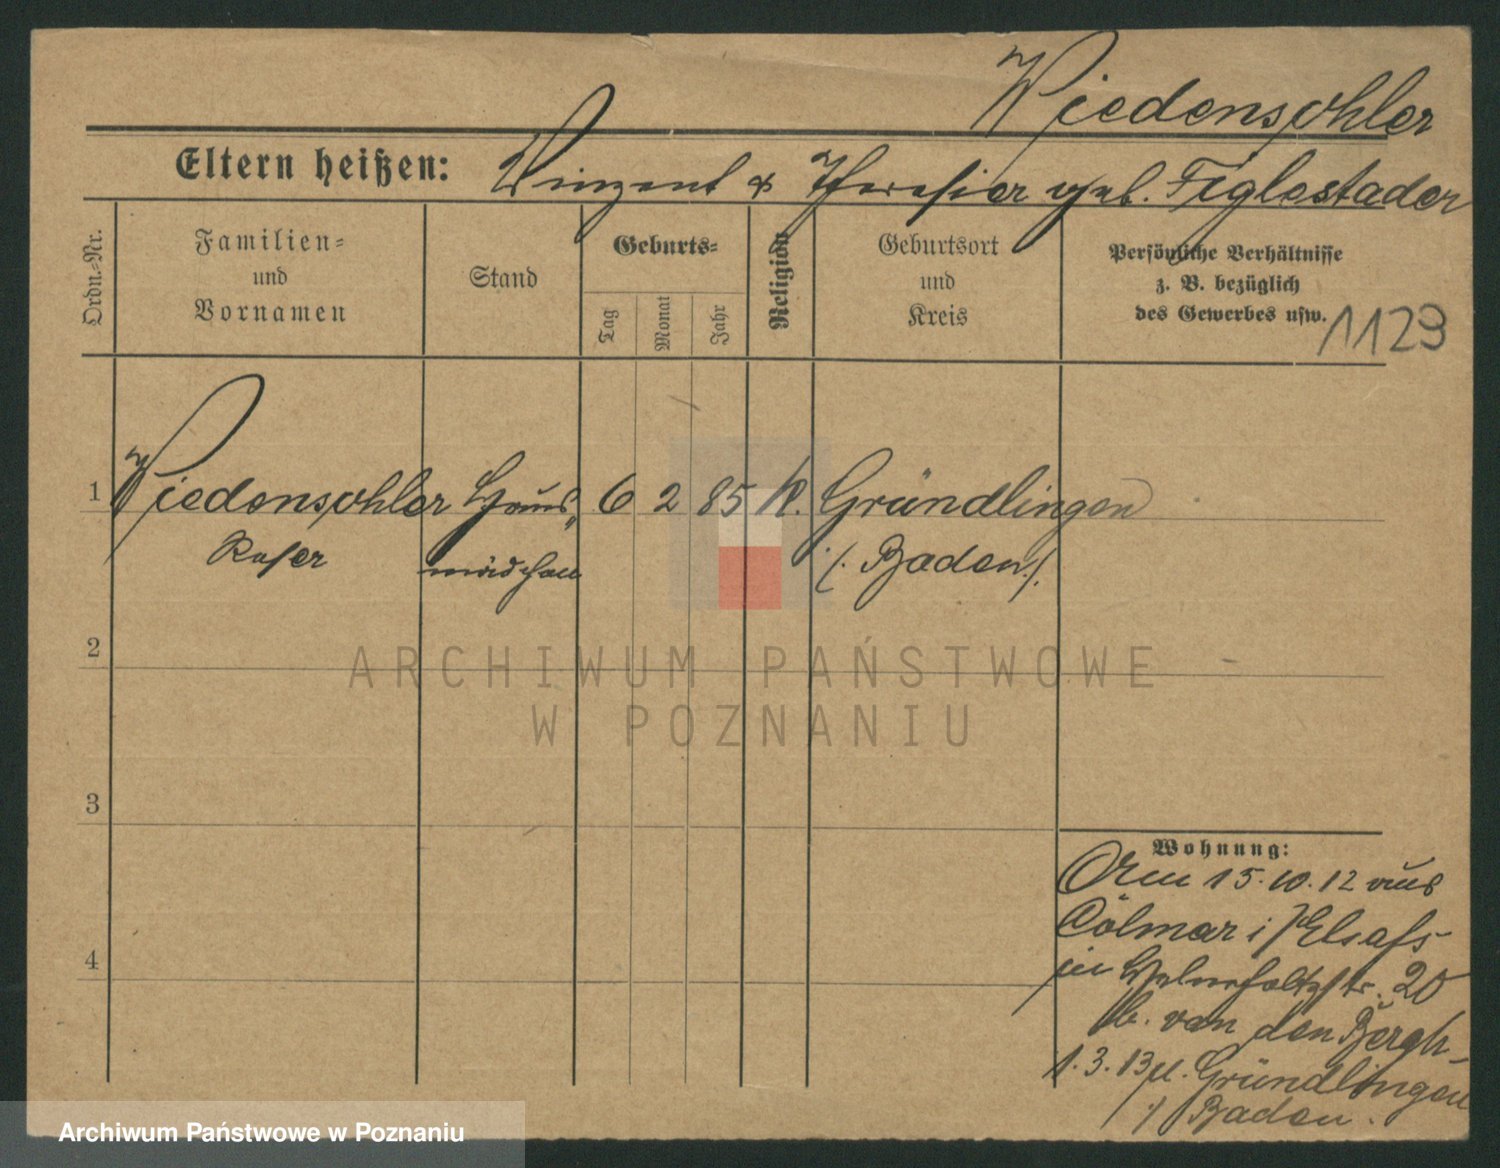 Wiedensohler
Eltern heißen: Vinzent & Theresia geb. Figlestader
Ordn.-Nr.
Familien-
und
Vornamen
Stand
Geburts-
Tag
Monat
Jahr
Religion
Geburtsort
und
Kreis
Persönliche Verhältnisse
z. B. bezüglich
des Gewerbes usw.
1129
1 Wiedensohler Haus- 6 2 85 k. Gründlingen
mädchen /. Baden ./.
2
3
4
Wohnung:
Am 15.10.12 aus
Colmar i/Elsaß
in 20
b. van den Bergh
1.3.13 n. Gründlingen
i/ Baden.
ARCHIWUM PAŃSTWOWE
W POZNANIU
Archiwum Państwowe w Poznaniu